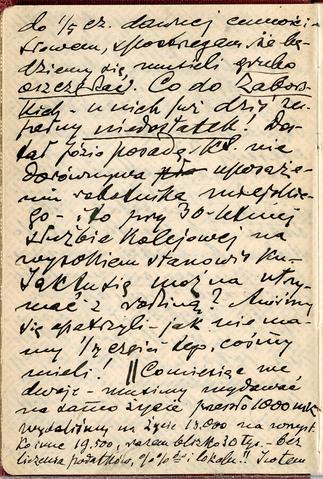 do 1/5 cz. dawnej cenności
Słowem, spostrzegam, że bę-
dziemy się musieli grubo
oszczędzać. Co do Zabor-
skich - u nich już dziś zu-
pełny niedostatek. Do-
stał Józio posadę, kt. nie
dorównywa uposaże-
niu robotnika miejskie-
go - i to przy 30-letniej
służbie kolejowej na
wysokiem stanowisku.
Jak tu się można utrzy-
mać z rodziną? Myśmy
się opatrzyli - jak nie ma-
my 1/7 części tego, cośmy
mieli! || Comiesiąc we
dwoje - musimy wydawać
na samo życie przeszło 1000 mk
wydaliśmy na życie 13.000 na
ko inne 19,500, razem blizko 30 tys. - bez
liczenia podatków, % % i lokalu!! Zatem